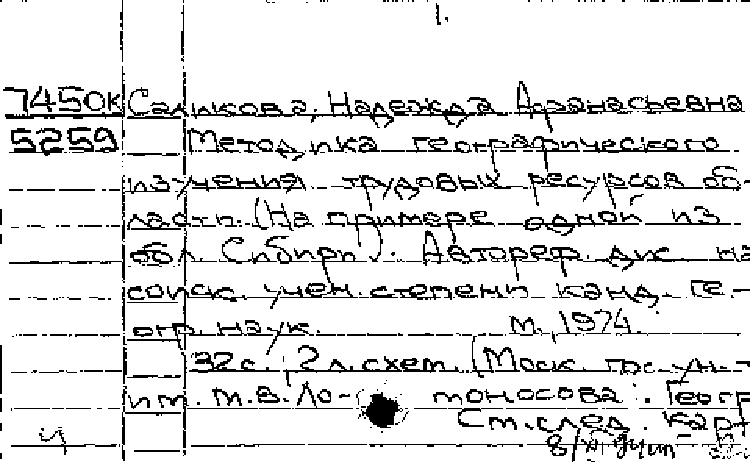 1.
7450к Саликова, Надежда Афанасьевна
5259 Методика географического
изучения трудовых ресурсов об-
ласти. (На примере одной из
обл. Сибири). Автореф. дис. на
соиск. учен. степени канд. ге-
огр. наук. М., 1974.
32 с.; 2 л. схем. (Моск. гос. ун-т
им. М.В. Ло- моносова. Геогр
Ст. след. карт
ч 8/XI